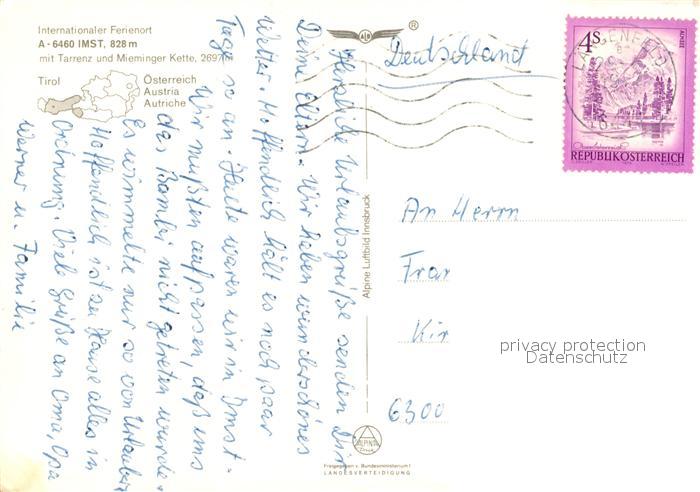 Internationaler Ferienort
A - 6460 IMST, 828 m
mit Tarrenz und Mieminger Kette, 2697 m
Tirol
Österreich
Austria
Autriche
Herzliche Urlaubsgrüße senden Dir
Deine Eltern. Wir haben wunderschönes
Wetter. Hoffendlich hält es noch paar
Tage so an. Heute waren wir in Imst.
Wir mußten aufpassen, daß uns
das Bambi nicht getreten wurde.
Es wimmelte nur so von Urlauber
Hoffendlich ist zu Hause alles in
Ordnung. Viele Grüße an Oma, Opa
Werner u. Familie
Alpine Luftbild Innsbruck
®
Deutschland
4S
ALMSEE
Oberösterreich
REPUBLIK ÖSTERREICH
An Herrn
Fran
Kir
6300
privacy protection
Datenschutz
ALPINE
Druck
Freigegeben v. Bundesministerium f.
LANDESVERTEIDIGUNG